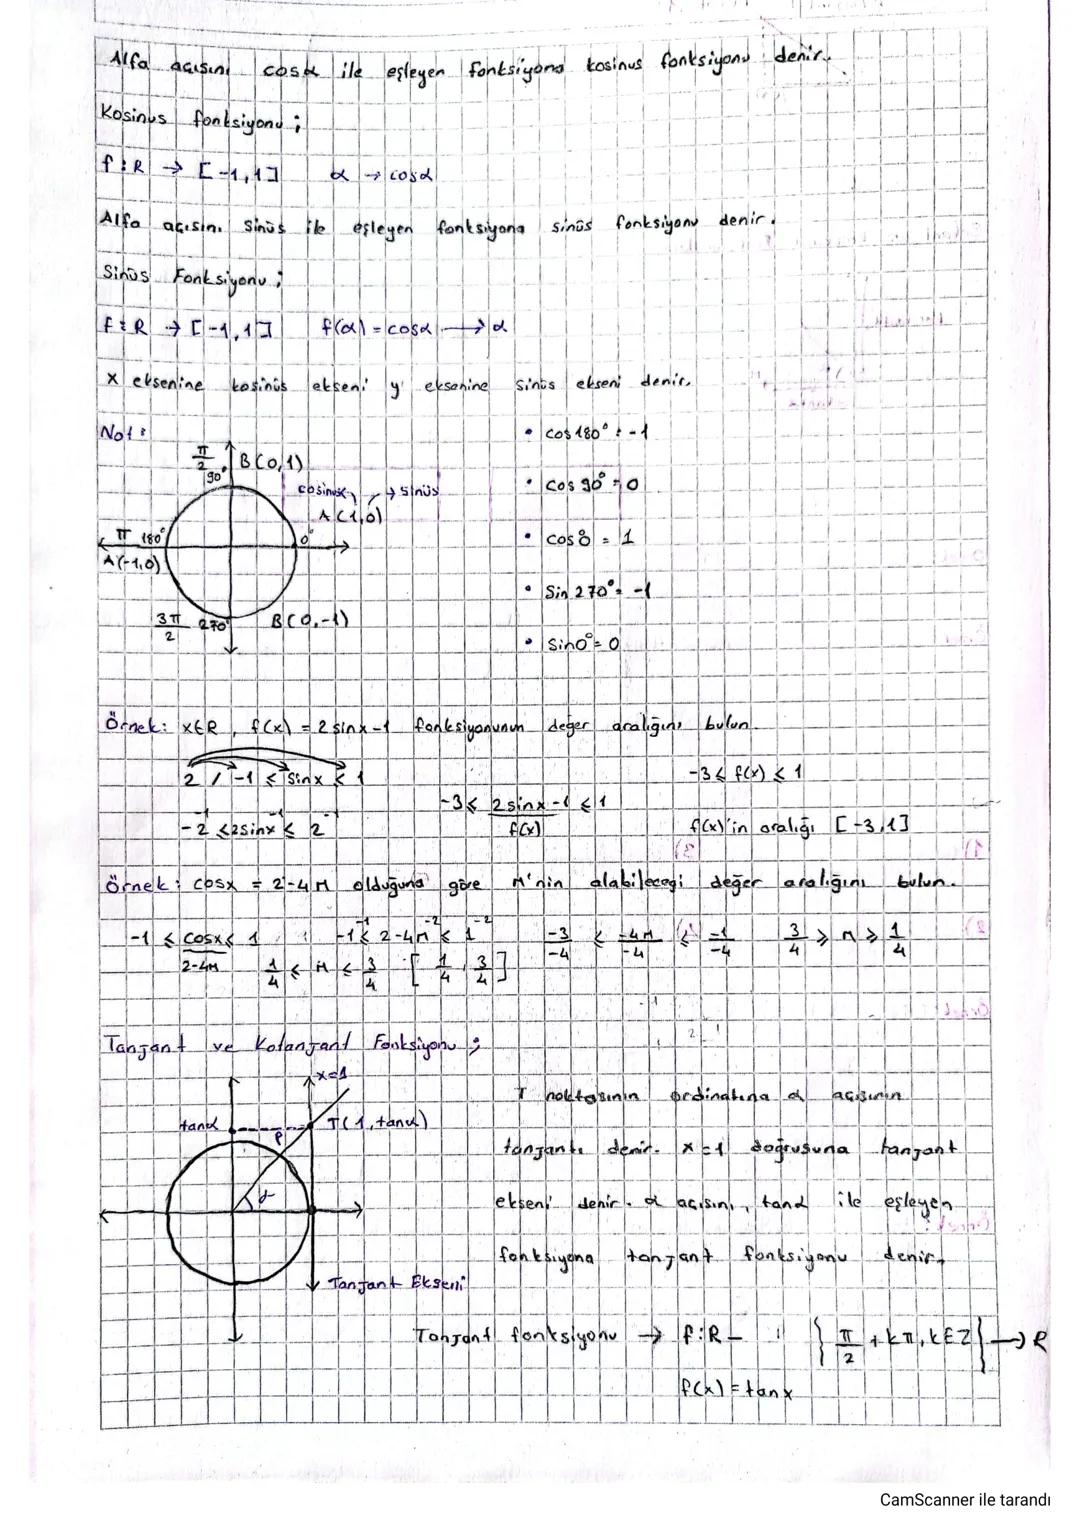 Alfa açısını cosα ile eşleyen fonksiyona kosinus fonksiyonu denir.
Kosinus fonksiyonu ;
f : R → [-1,1] α → cosα
Alfa açısını sinüs ile eşleyen fonksiyona sinüs fonksiyonu denir.
Sinüs Fonksiyonu ;
f : R → [-1,1] f(α) = cosα → α
X eksenine kosinüs ekseni y eksenine sinüs ekseni denir.
Not :
π/2 90° B(0,1)
cosinus → sinüs
A(1,0)
π 180° 0°
A'(-1,0)
3π/2 270° B(0,-1)
• cos 180° = -1
• cos 90° = 0
• cos 0° = 1
• Sin 270° = -1
• Sin0° = 0
Örnek: x∈R , f(x) = 2sinx-1 fonksiyonunun değer aralığını bulun.
2 / -1 ≤ sinx ≤ 1 -3 ≤ f(x) ≤ 1
-1 -1 -1
-2 ≤ 2sinx ≤ 2 -3 ≤ 2sinx-1 ≤ 1 f(x)'in aralığı [-3,1]
f(x)
Örnek : cosx = 2-4M olduğuna göre M'nin alabileceği değer aralığını bulun.
-1 ≤ cosx ≤ 1 -1 ≤ 2-4M ≤ 1 -3/-4 ≤ -4M/-4 ≤ -1/-4 3/4 ≥ M ≥ 1/4
2-4M 1/4 ≤ M ≤ 3/4 [1/4, 3/4]
Tanjant ve Kotanjant Fonksiyonu ;
x=1
tanα P T(1,tanα)
α
Tanjant Ekseni
T noktasının ordinatına α açısının
tanjantı denir. x=1 doğrusuna tanjant
ekseni denir. α açısını, tanα ile eşleyen
fonksiyona tanjant fonksiyonu denir.
Tanjant fonksiyonu → f:R - {π/2 + kπ, k∈Z} → R
f(x) = tanx
CamScanner ile tarandı